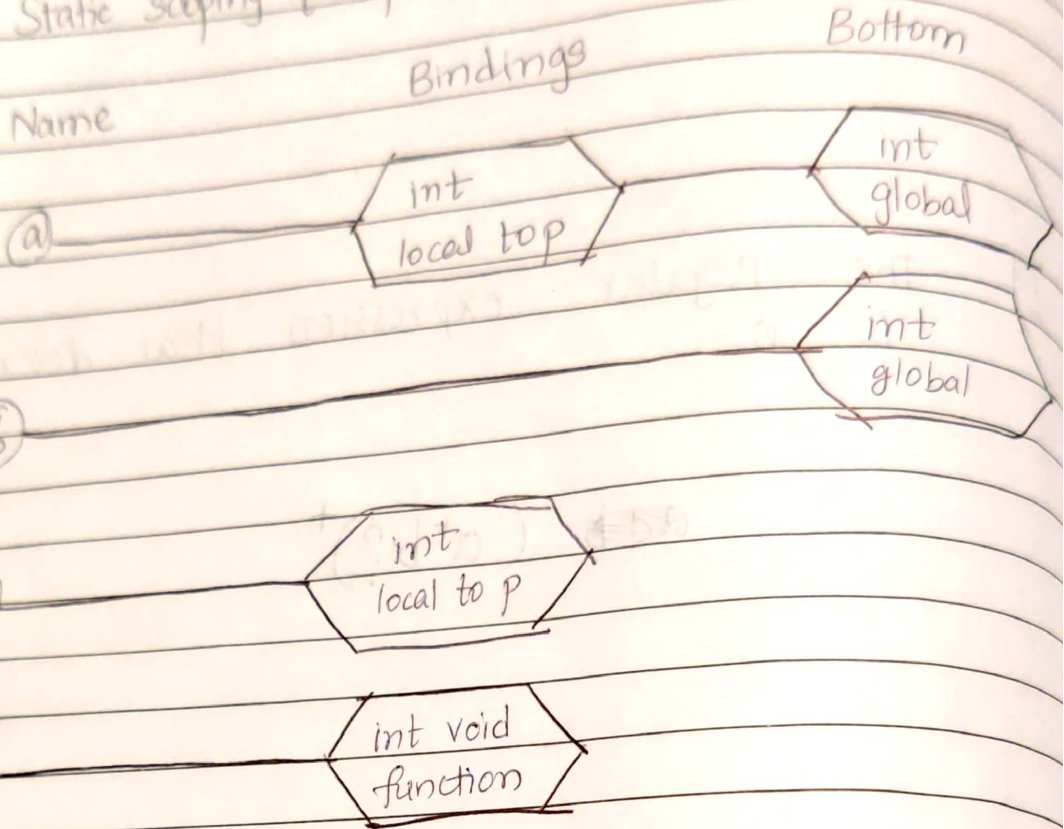 Static scoping
Bottom
Bindings
Name
int
int
local to p
global
a
int
global
int
local to p
int void
function